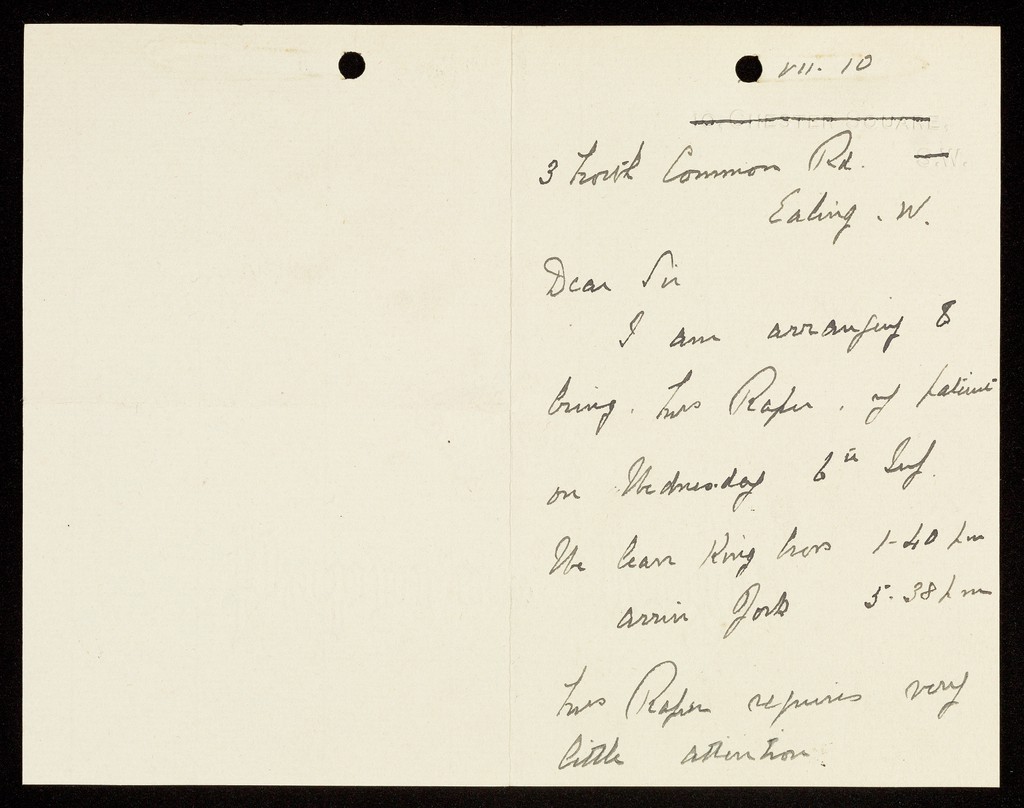 VII. 10
10, CHESTER SQUARE,
S.W.
3 North Common Rd.
Ealing. W.
Dear Sir
I am arranging to
bring. Mrs Raper. my patient
on Wednesday 6th July.
We leave King Cross 1-40 pm
arrive York 5.38 pm
Mrs Raper requires very
little attention.